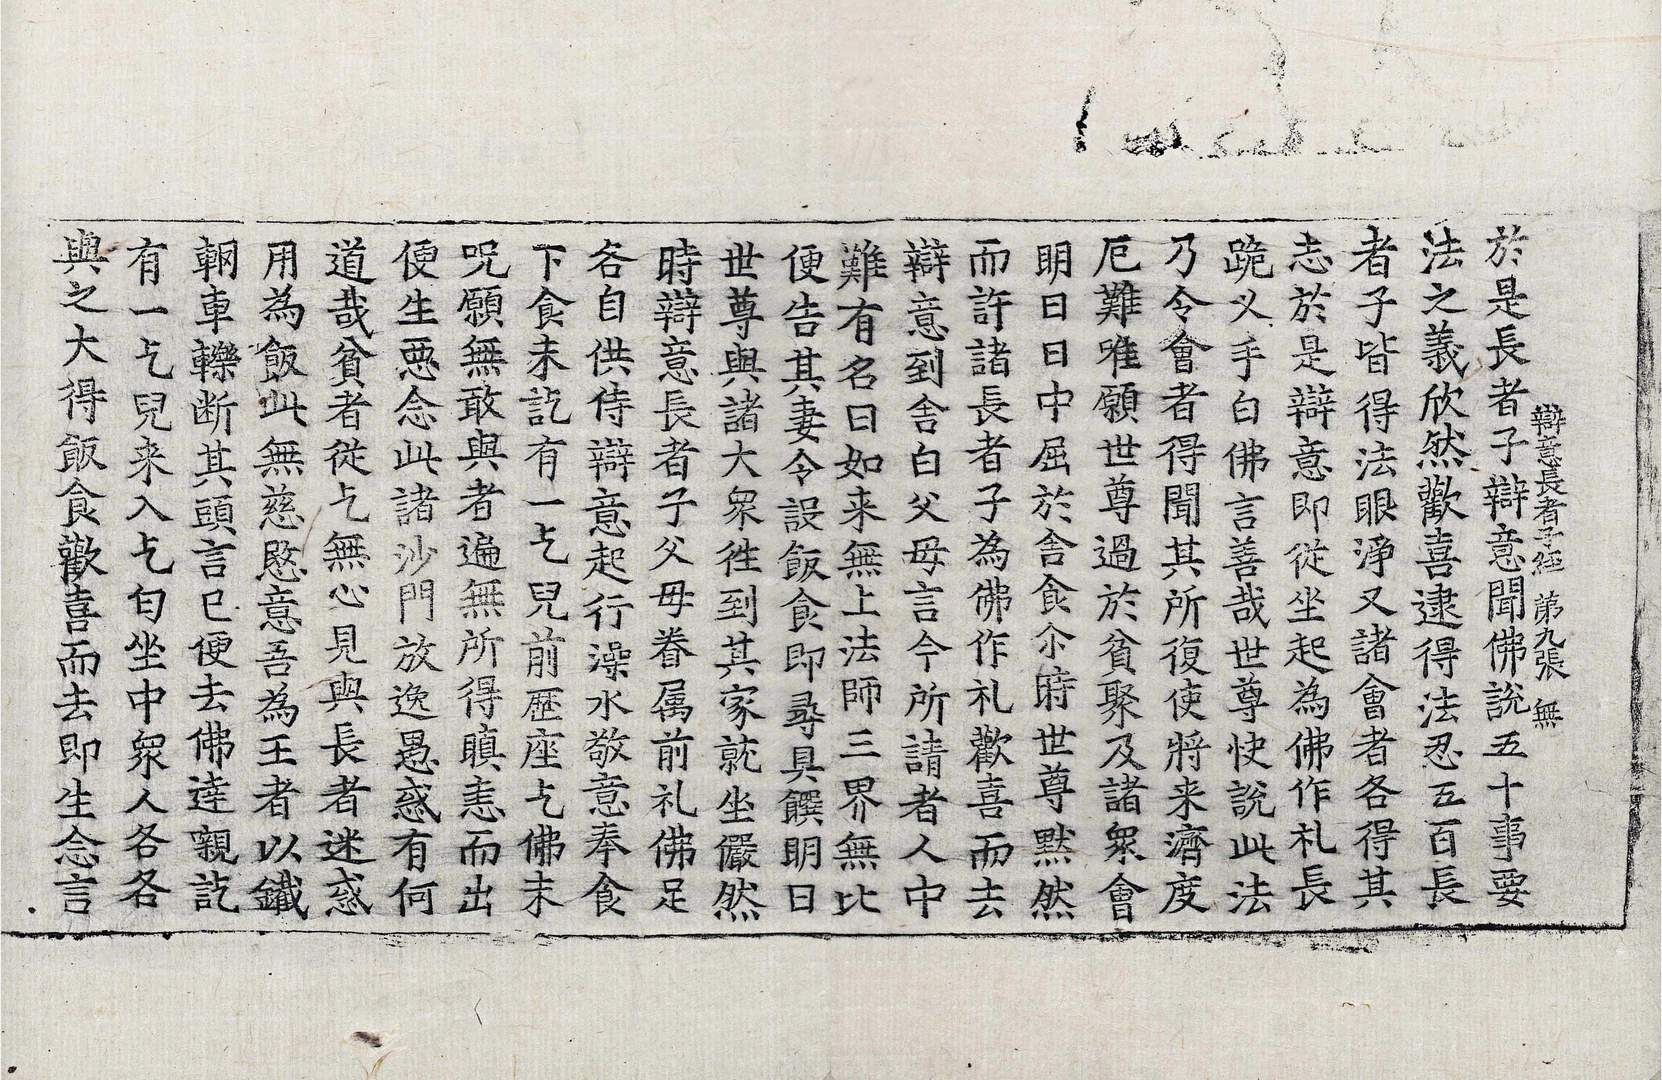 辯意長者子經 第九張 無
於是長者子辯意聞佛說五十事要
法之義欣然歡喜逮得法忍五百長
者子皆得法眼淨又諸會者各得其
志於是辯意即從坐起為佛作礼長
跪叉手白佛言善哉世尊快說此法
乃令會者得聞其所復使將来濟度
厄難唯願世尊過於貧聚及諸衆會
明日日中屈於舍食尒時世尊默然
而許諸長者子為佛作礼歡喜而去
辯意到舍白父母言今所請者人中
難有名曰如来無上法師三界無比
便告其妻令設飯食即尋具饌明日
世尊與諸大衆徃到其家就坐儼然
時辯意長者子父母眷属前礼佛足
各自供侍辯意起行澡水敬意奉食
下食未訖有一乞兒前歷座乞佛未
呪願無敢與者遍無所得瞋恚而出
便生惡念此諸沙門放逸愚惑有何
道哉貧者從乞無心見與長者迷惑
用為飯此無慈愍意吾為王者以鐵
輞車轢断其頭言已便去佛達親訖
有一乞兒来入乞匃坐中衆人各各
與之大得飯食歡喜而去即生念言